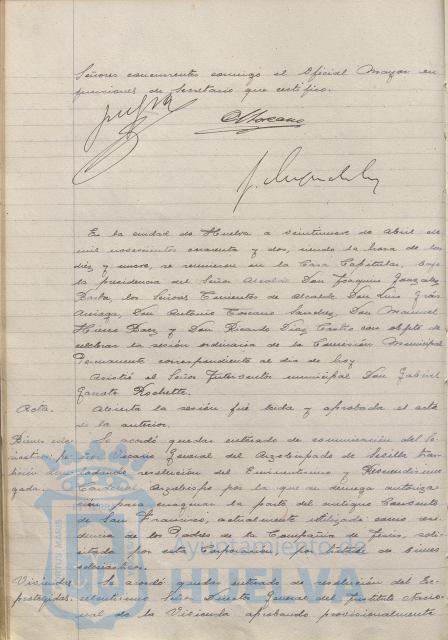 Señores concurrentes conmigo el Oficial Mayor en
funciones de Secretario que certifico.
En la ciudad de Huelva a veintinueve de Abril de
mil novecientos cuarenta y dos, siendo la hora de las
diez y nueve, se reunieron en la Casa Capitular, bajo
la presidencia del Señor Alcalde Don Joaquin Gonzalez
Barba, los Señores Tenientes de Alcalde Don Luis
Don Antonio Toscano Sanchez, Don Manuel
Hierro Baez y Don Ricardo Diaz Castro con objeto de
celebrar la sesión ordinaria de la Comisión Municipal
Permanente correspondiente al día de hoy.
Asistió el Señor Interventor municipal Don Gabriel
Rochette.
Acta. Abierta la sesión fué leida y aprobada el acta
de la anterior.
Bienes ecle- Se acordó quedar enterado de comunicación del
Vicario General del Arzobispado de Sevilla
resolución del Eminentisimo y Reverendisimo
Cardenal Arzobispo por la que se deniega autoriza-
ción para enagenar la parte del antiguo Convento
de San Francisco, actualmente utilizada como resi-
dencia de los Padres de la Compañia de Jesús, soli-
citada por esta Corporación por tratarse de bienes
eclesiasticos.
Viviendas Se acordó quedar enterado de resolución del Ex-
protegidas. celentisimo Señor Director General del Instituto Nacio-
nal de la Vivienda aprobando provisionalmente
Ayuntamiento de
HUELVA